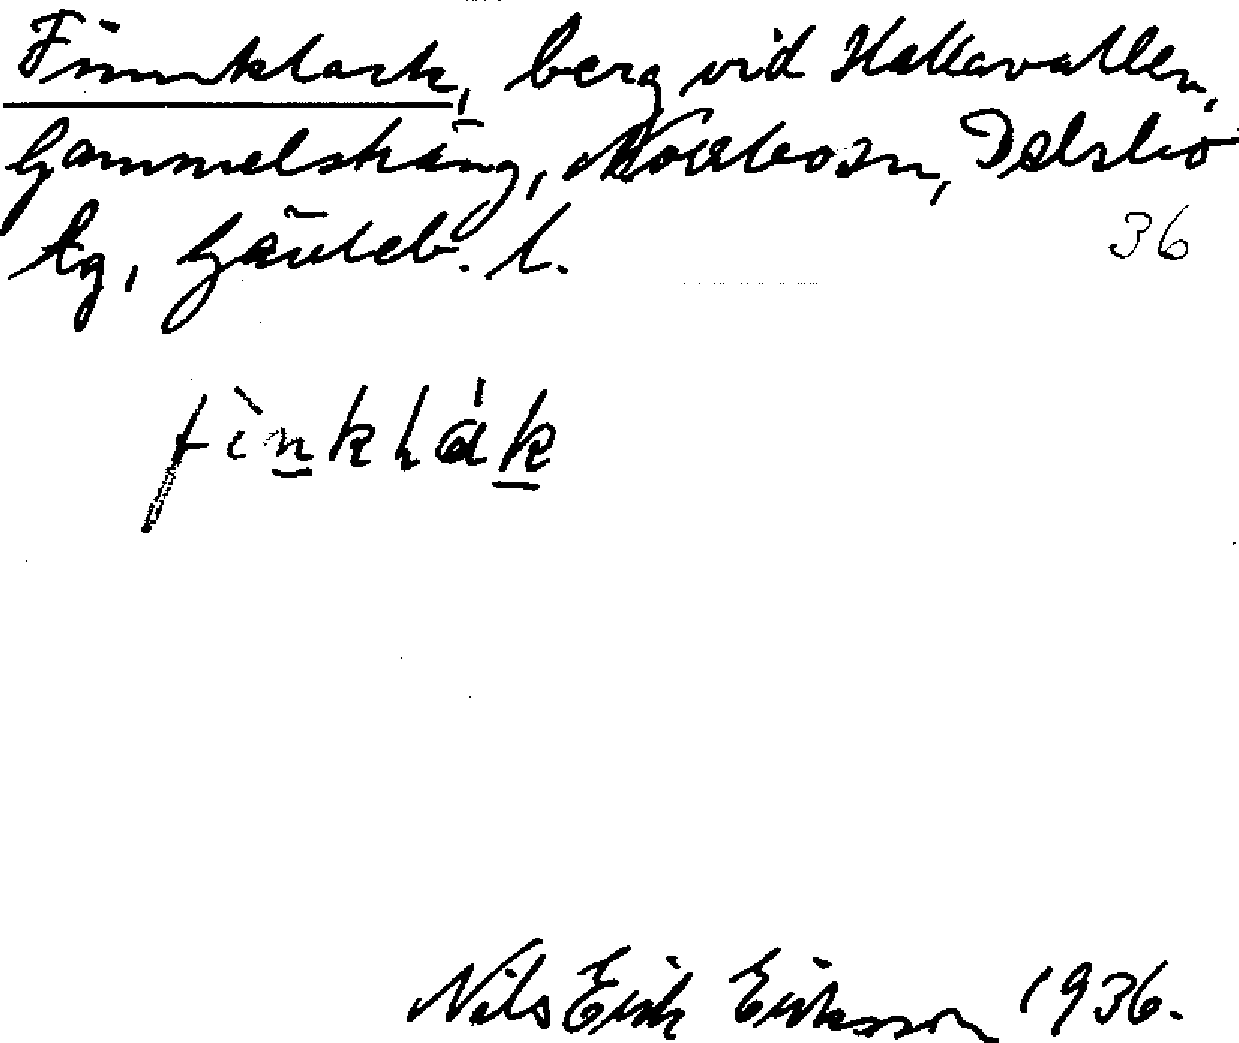 Finnklack, berg vid Hallavallen,
Gammelsträng, Norrbosn, Delsbo
tg, Gävleb. l.
36
fìnklák
Nils Erik Eriksson 1936.